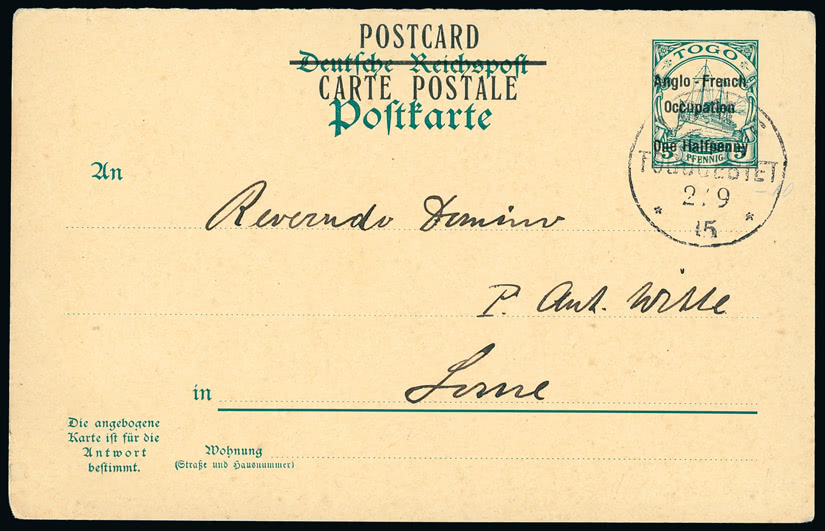 POSTCARD
Deutsche Reichspost
CARTE POSTALE
Postkarte
TOGO
Anglo-French
Occupation
One Halfpenny
5 PFENNIG 5
TOGOGEBIET
2/9
* *
15
An
Reverendo Domino
P. Ant. Witte
in Lome
Die angebogene
Karte ist für die
Antwort
bestimmt.
Wohnung
(Straße und Hausnummer)